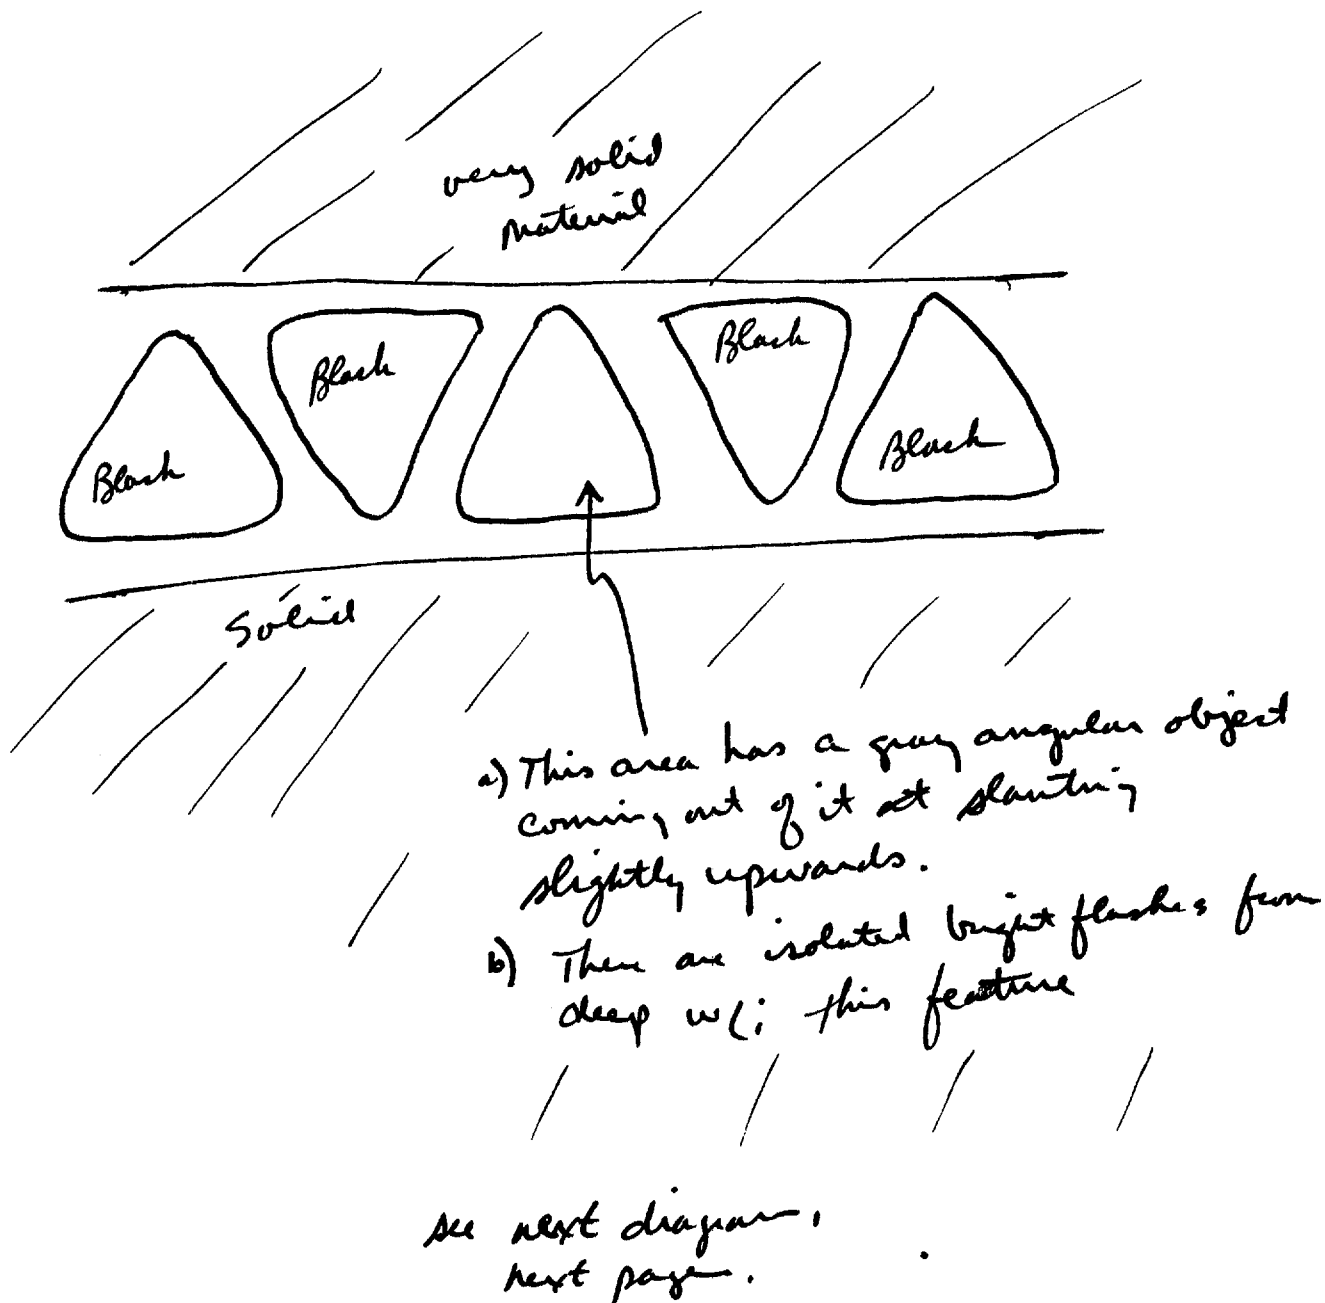 very solid
material
Black
Black
Black
Black
Solid
a) This area has a gray angular object
coming out of it at slanting
slightly upwards.
b) There are isolated bright flashes from
deep w/i this feature
see next diagram,
next page.